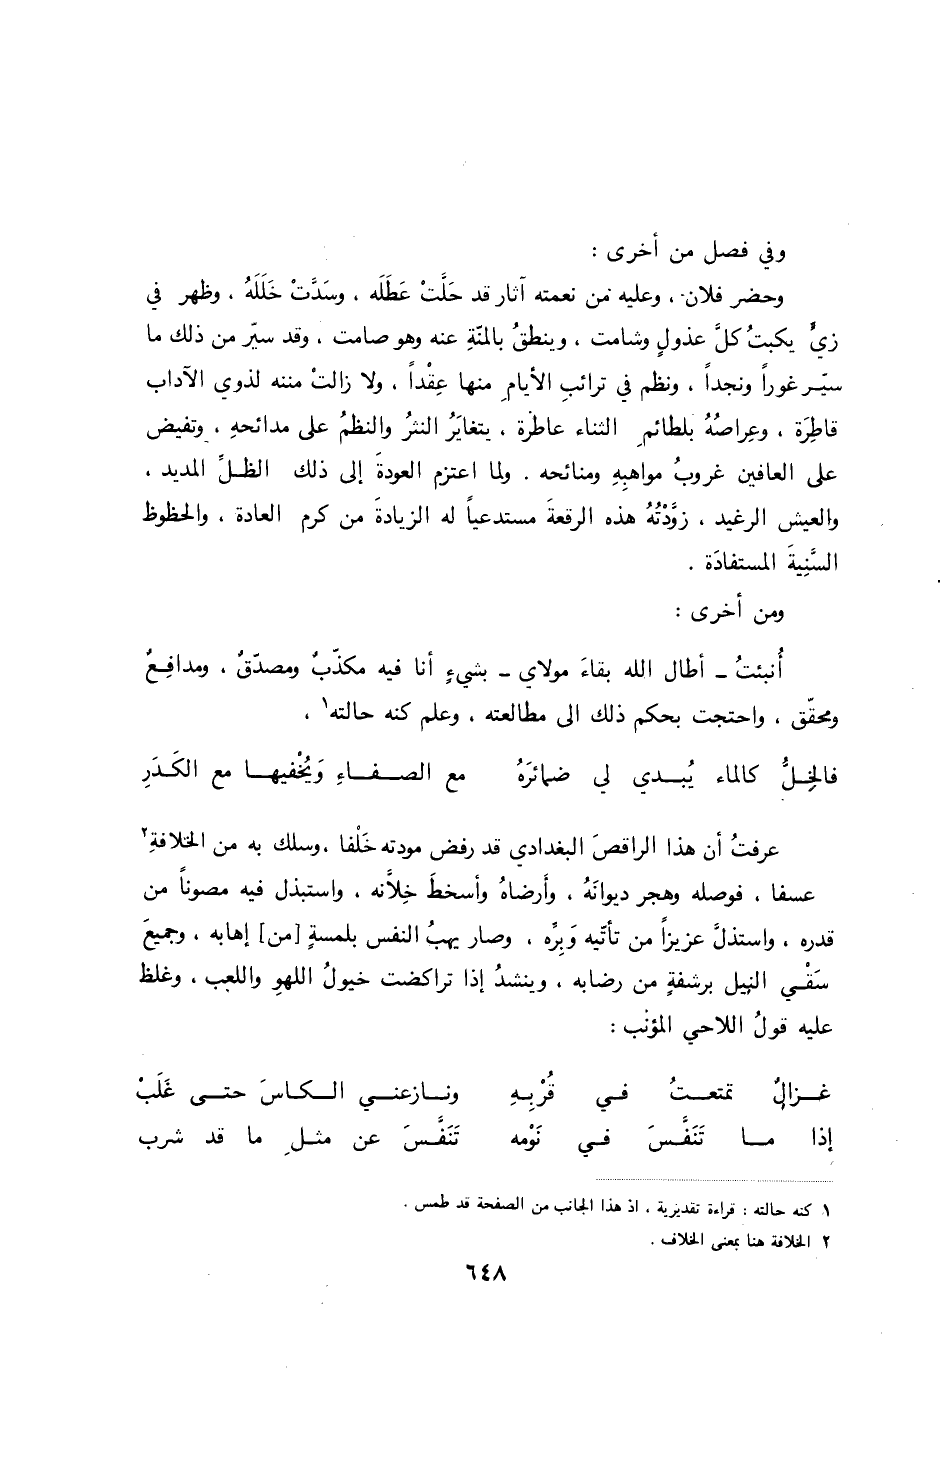 وفي فصل من أخرى :
وحضر فلان ، وعليه من نعمته آثار قد حَلَّتْ عَطَلَه ، وسَدَّتْ خَلَلَهُ ، وظهر في
زيٍّ يكبتُ كلَّ عذولٍ وشامت ، وينطقُ بالمنّةِ عنه وهو صامت ، وقد سيّر من ذلك ما
سيّر غوراً ونجداً ، ونظم في ترائبِ الأيامِ منها عِقْداً ، ولا زالتْ مننه لذوي الآداب
قاطِرَة ، وعِراصُهُ بلطائمِ الثناء عاطرة ، يتغايَرُ النثرُ والنظمُ على مدائحهِ ، وتفيض
على العافين غروبُ مواهبِهِ ومنائحه . ولما اعتزم العودةَ إلى ذلك الظلِّ المديد ،
والعيش الرغيد ، زوَّدْتُهُ هذه الرقعةَ مستدعياً له الزيادةَ من كرم العادة ، والحظوظ
السَّنِيةَ المستفادَة .
ومن أخرى :
أُنبئتُ ــ أطال الله بقاءَ مولاي ــ بشيءٍ أنا فيه مكذّبٌ ومصدّقٌ ، ومدافِعٌ
ومحقّق ، واحتجت بحكم ذلك الى مطالعته ، وعلم كنه حالته١ ،
فالخِلُّ كالماء يُبدي لي ضمائرَهُ مع الصفاءِ وَيُخْفيها مع الكَدَرِ
عرفتُ أن هذا الراقصَ البغدادي قد رفض مودته خَلْفا ، وسلك به من الخلافةِ٢
عسفا ، فوصله وهجر ديوانَهُ ، وأرضاهُ وأسخطَ خِلاَّنه ، واستبذل فيه مصوناً من
قدره ، واستذلَّ عزيزاً من تأتّيه وَبِرِّه ، وصار يهبُ النفس بلمسةٍ [من] إهابه ، وجميعَ
سَقْي النيل برشفةٍ من رضابه ، وينشدُ إذا تراكضت خيولُ اللهوِ واللعب ، وغلظ
عليه قولُ اللاحي المؤنّب :
غزالٌ تمتعتُ في قُرْبِهِ ونازعني الكاسَ حتى غَلَبْ
إذا ما تَنَفَّسَ في نَوْمه تَنَفَّسَ عن مثلِ ما قد شرب
١ كنه حالته : قراءة تقديرية ، اذ هذا الجانب من الصفحة قد طمس .
٢ الخلافة هنا بمعنى الخلاف .
٦٤٨